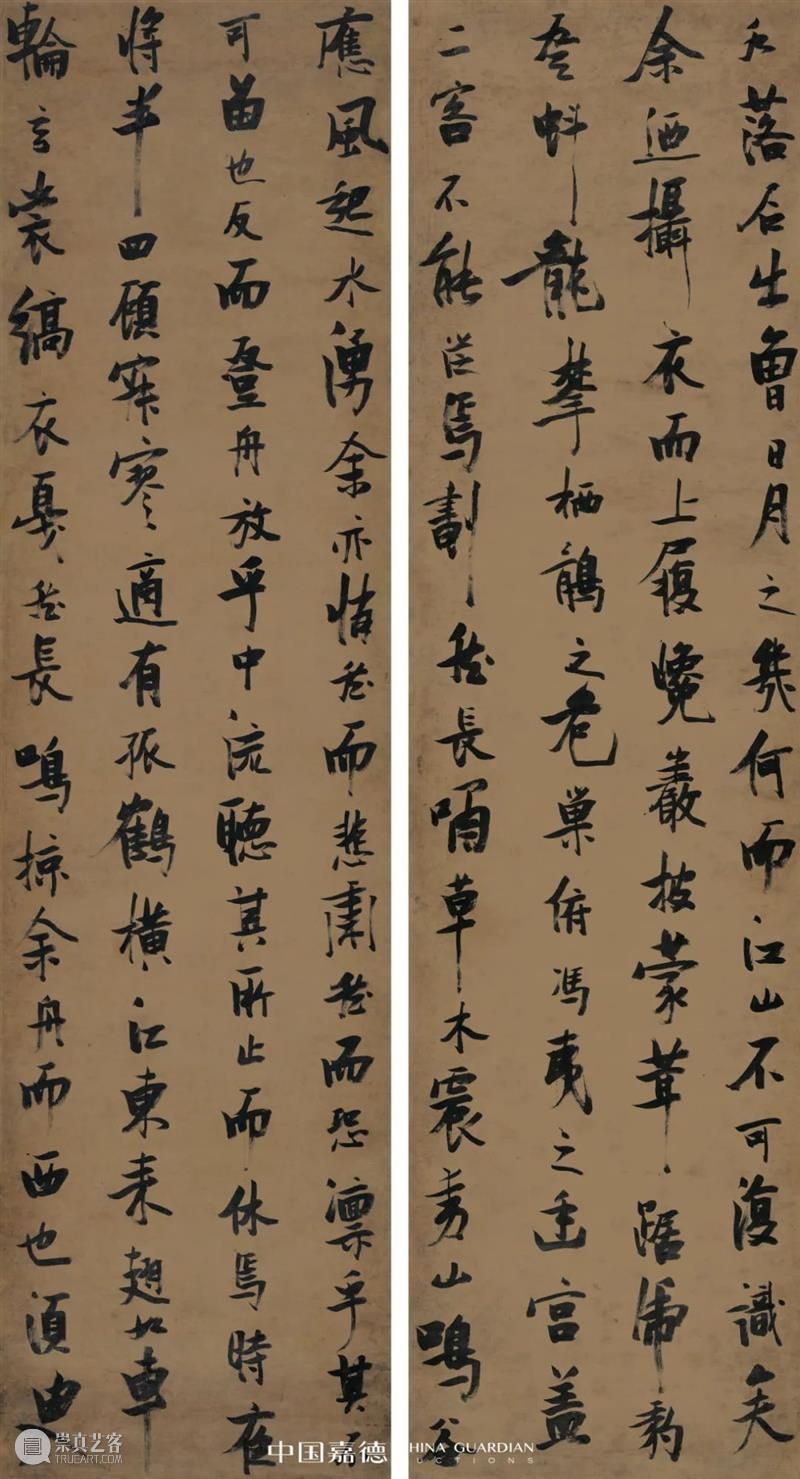 水落石出曾日月之幾何而江山不可復識矣
余迺攝衣而上履巉巖披蒙茸踞虎豹
登虯龍攀栖鶻之危巢俯馮夷之幽宮蓋
二客不能從焉劃然長嘯草木震動山鳴谷
應風起水湧余亦悄然而悲肅然而恐凛乎其不
可留也反而登舟放乎中流聽其所止而休焉時夜
將半四顧寂寥適有孤鶴橫江東來翅如車
輪玄裳縞衣戛然長鳴掠余舟而西也須臾
中国嘉德 HINA GUARDIAN
UCTIONS
崇真艺客
TRUEART.COM